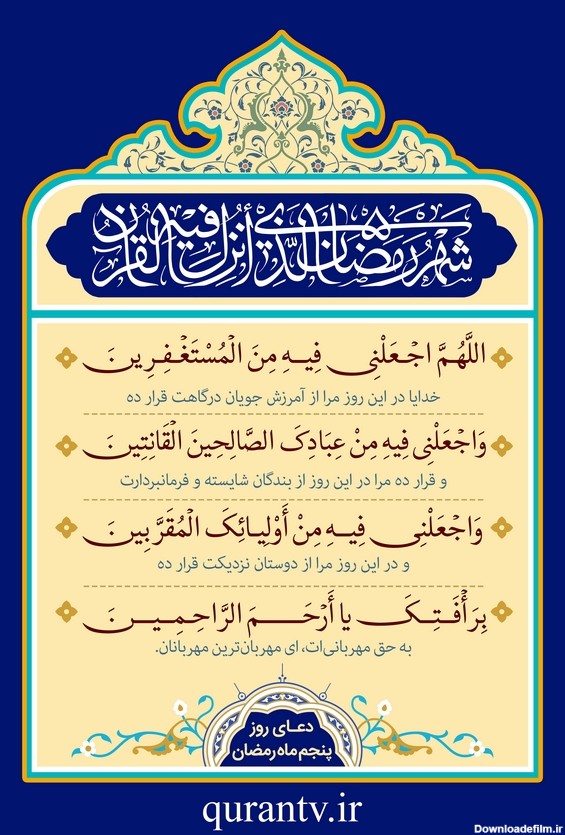 شهر رمضان الذي أنزل فيه القرآن
اللَّهُمَّ اجْعَلْنِی فِیهِ مِنَ الْمُسْتَغْفِرِینَ
خدایا در این روز مرا از آمرزش جویان درگاهت قرار ده
وَاجْعَلْنِی فِیهِ مِنْ عِبَادِکَ الصَّالِحِینَ الْقَانِتِینَ
و قرار ده مرا در این روز از بندگان شایسته و فرمانبردارت
وَاجْعَلْنِی فِیهِ مِنْ أَوْلِیائِکَ الْمُقَرَّبِینَ
و در این روز مرا از دوستان نزدیکت قرار ده
بِرَأْفَتِکَ یا أَرْحَمَ الرَّاحِمِینَ
به حق مهربانی‌ات، ای مهربان‌ترین مهربانان.
دعای روز
پنجم ماه رمضان
qurantv.ir
Downloadefilm.ir